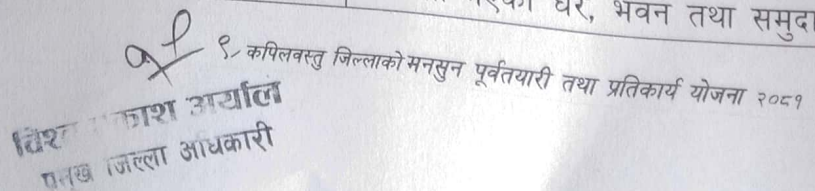 घर, भवन तथा समुदा
९, कपिलवस्तु जिल्लाको मनसुन पूर्वतयारी तथा प्रतिकार्य योजना २०८१
अर्याल
जिल्ला अधिकारी